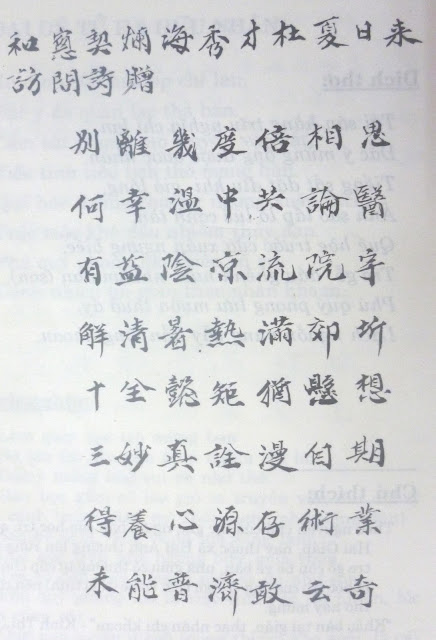 和窻契爛海秀才杜夏日来
訪問詩贈
別離幾度倍相思
何幸溫中共論醫
有益陰凉流院宇
解清暑熱滿郊圻
十全懿矩猶懸想
三妙真詮漫自期
得養心源存術業
未能普濟敢云奇